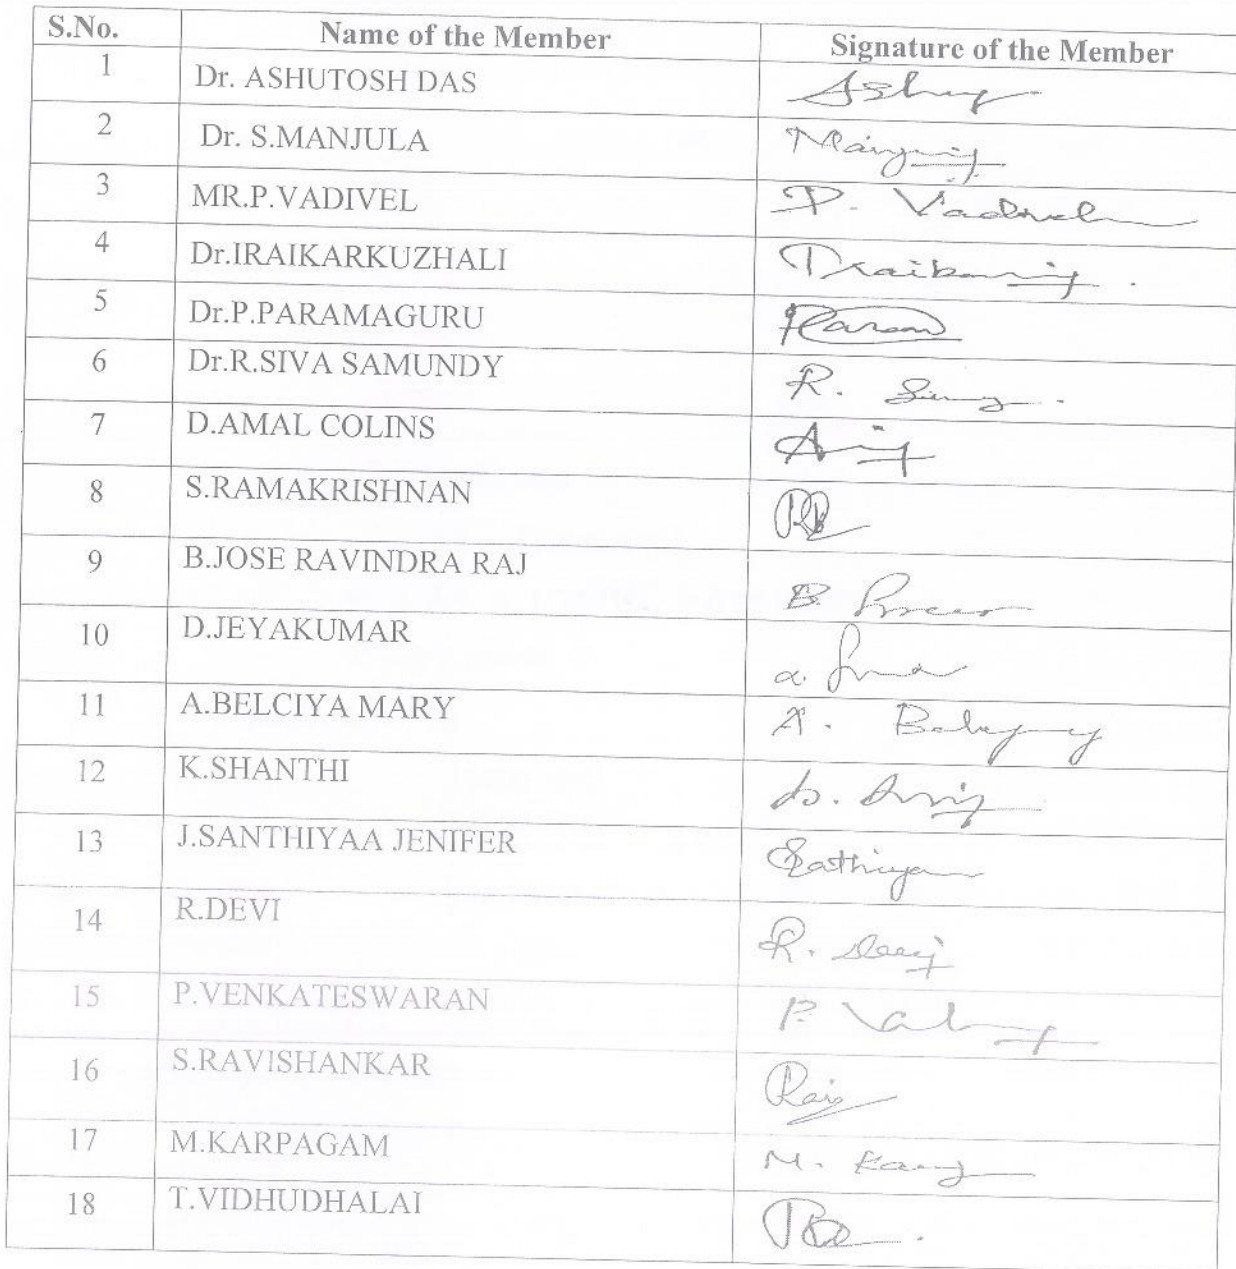 S.No. Name of the Member Signature of the Member
1 Dr. ASHUTOSH DAS
2 Dr. S.MANJULA
3 MR.P.VADIVEL P. Vadivel
4 Dr.IRAIKARKUZHALI
5 Dr.P.PARAMAGURU
6 Dr.R.SIVA SAMUNDY R.
7 D.AMAL COLINS
8 S.RAMAKRISHNAN
9 B.JOSE RAVINDRA RAJ B.
10 D.JEYAKUMAR
11 A.BELCIYA MARY A.
12 K.SHANTHI
13 J.SANTHIYAA JENIFER
14 R.DEVI R.
15 P.VENKATESWARAN P.
16 S.RAVISHANKAR
17 M.KARPAGAM M.
18 T.VIDHUDHALAI